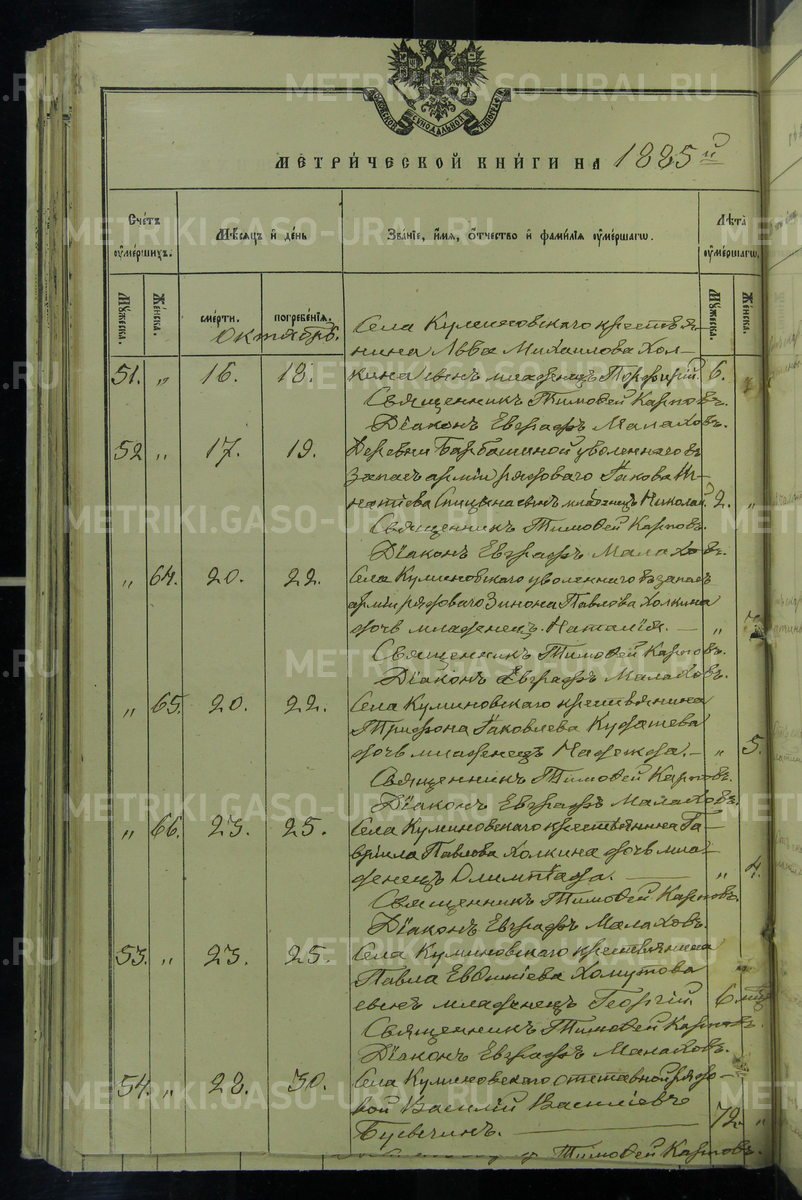 МОСКОВСКОЙ СѴНОДАЛЬНОЙ ТИПОГРАФІИ
МЕТРИ́ЧЕСКОЙ КНИ́ГИ НА 1885й
Сче́тъ ᲂу҆ме́ршихъ.
Мѣ́сяцъ и҆ де́нь
Зва́нїе, и҆́мѧ, ѻ҆́тчество и҆ фами́лїѧ ᲂу҆ме́ршагѡ.
Лѣ́та ᲂу҆ме́ршагѡ.
Мꙋ́жеска.
Же́нска.
сме́рти.
погребе́нїѧ.
Мꙋ́жеска.
Же́нска.
Октябрь.
Села Куминовскаго крестья-
нина Льва Михаилова Хол-
51. „ 16. 18. кина сынъ младенецъ Порфирій. 6.
Священникъ Тимоѳей Карповъ.
Діаконъ Евграфъ Малаховъ.
52 „ 17. 19. Деревни Барбашиной уволеннаго въ
запасъ арміи рядоваго Іакова Иг-
натіева Спицына сынъ младенецъ Николай. 2. „
Священникъ Тимоѳей Карповъ.
Діаконъ Евграфъ Малаховъ.
„ 64. 20. 22. Села Куминовскаго уволеннаго въ запасъ
арміи рядоваго Зинона Павлова Холкина
дочь младенецъ Наталія. — „
Священникъ Тимоѳей Карповъ.
Діаконъ Евграфъ Малаховъ.
„ 65. 20. 22. Села Куминовскаго крестьянина
Трифона Іаковлева Кудашева
дочь младенецъ Надежда. — „ 5.
Священникъ Тимоѳей Карповъ.
Діаконъ Евграфъ Малаховъ.
„ 66. 23. 25. Села Куминовскаго крестьянина Га-
вріила Павлова Холкина дочь мла-
денецъ Олимпіада. — „ 4.
Священникъ Тимоѳей Карповъ.
Діаконъ Евграфъ Малаховъ.
53. „ 23. 25. Села Куминовскаго крестьянина
Павла Евѳиміева Хомутова
сынъ младенецъ Георгій 6 мцъ
Священникъ Тимоѳей Карповъ.
Діаконъ Евграфъ Малаховъ.
54. „ 28. 30. Села Куминовскаго отставной рядо-
вой Василій Васильевъ
— 72. „
Тимоѳей Карповъ.
METRIKI.GASO-URAL.RU